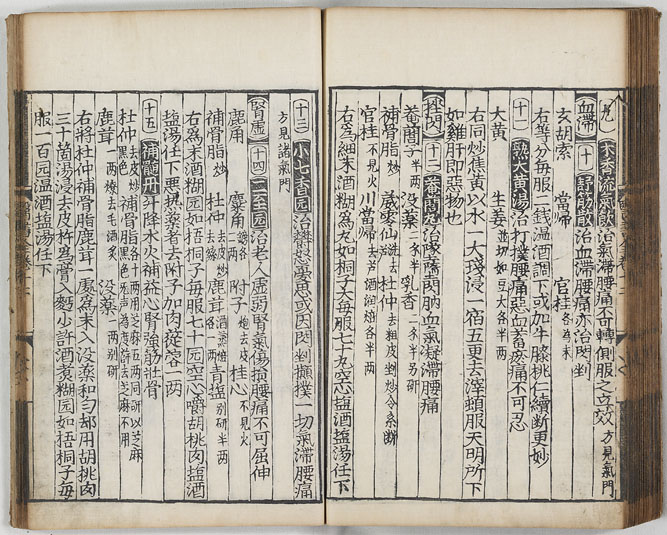 九 木香流氣飲 治氣滯腰痛不可轉側服之立效 方見氣門
血滯 十 舒筋散 治血滯腰痛亦治閃剉
玄胡索 當歸 官桂 各爲末
右等分每服二錢温酒調下或加牛膝桃仁續断更妙
十一 熟大黃湯 治打撲腰痛惡血蓄瘀痛不可忍
大黃 生姜 並切如豆大各半兩
右同炒焦黃以水一大盞浸一宿五更去滓頓服天明所下
如雞肝即惡物也
挫閃 十二 菴䕡丸 治墜墮閃肭血氣凝滯腰痛
菴䕡子 半兩 没藥 半 乳香 半另研
補骨脂 炒 葳靈仙 洗去土 杜仲 去粗皮剉炒令系断
官桂 不見火 川當帰 去芦酒浸焙各半兩
右爲細末酒糊爲丸如桐子大每服七十丸空心塩酒塩湯任下
十三 小七香园 治鬱怒憂思或因閃剉攧撲一切氣滯腰痛
方見諸氣門
腎虛 十四 二至园 治老人虛弱腎氣傷損腰痛不可屈伸
鹿角 鎊各 麋角 二兩 附子 炮去皮 桂心 不見火
補骨脂 炒 杜仲 去皮炒去絲 鹿茸 酒蒸焙各一兩 青塩 別研半兩
右爲末酒糊园如梧桐子每服七十园空心嚼胡桃肉塩酒
塩湯任下悪熱藥者去附子加肉蓯蓉一兩
十五 補髓丹 升降水火補益心腎強筋壮骨
杜仲 去皮炒黑色 補骨脂 各十兩用芝麻五兩同研以芝麻黑色无声為度篩去芝麻不用
鹿茸 一兩燎去毛酒炙 没藥 一兩別研
右將杜仲補骨脂鹿茸一處爲末入没藥和勻却用胡桃肉
三十箇湯浸去皮杵爲膏入麪少許酒煮糊园如梧桐子每
服一百园温酒塩湯任下